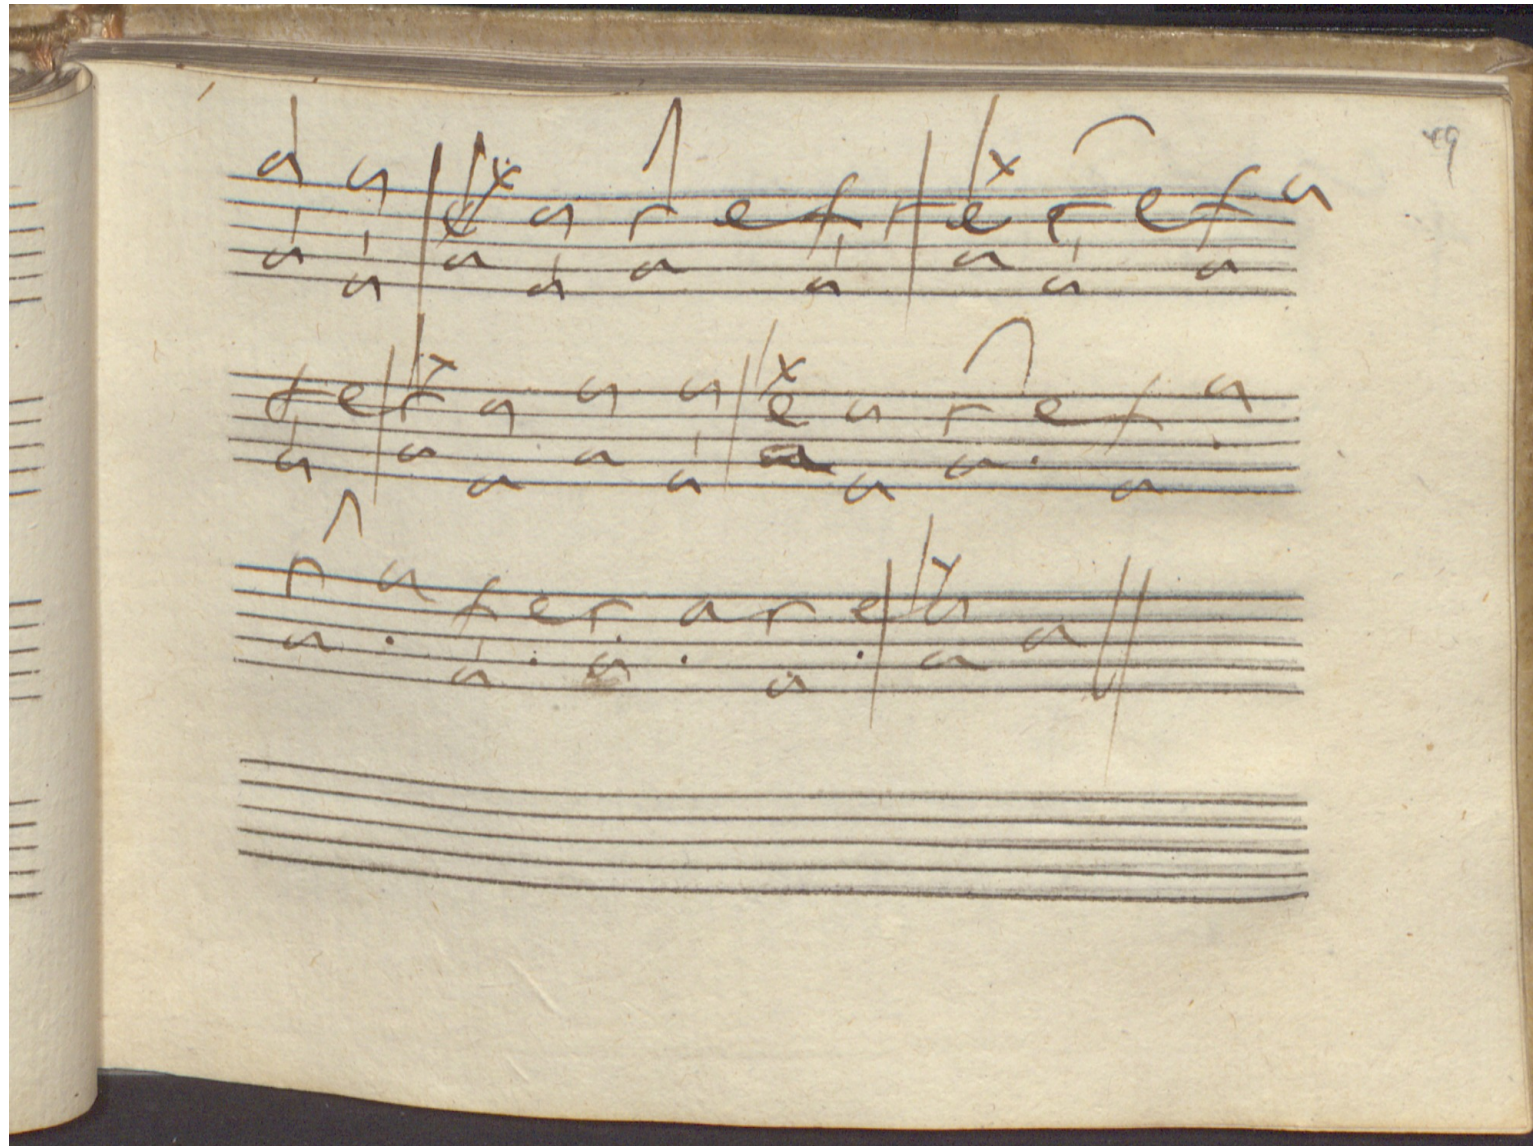 49
a a e x a r e f r e x r e f a
a a a a a a a a a
f e r x a a a e x a r e f a
a a a a a a a a a
r a f e r a r e a x
a a a a a a